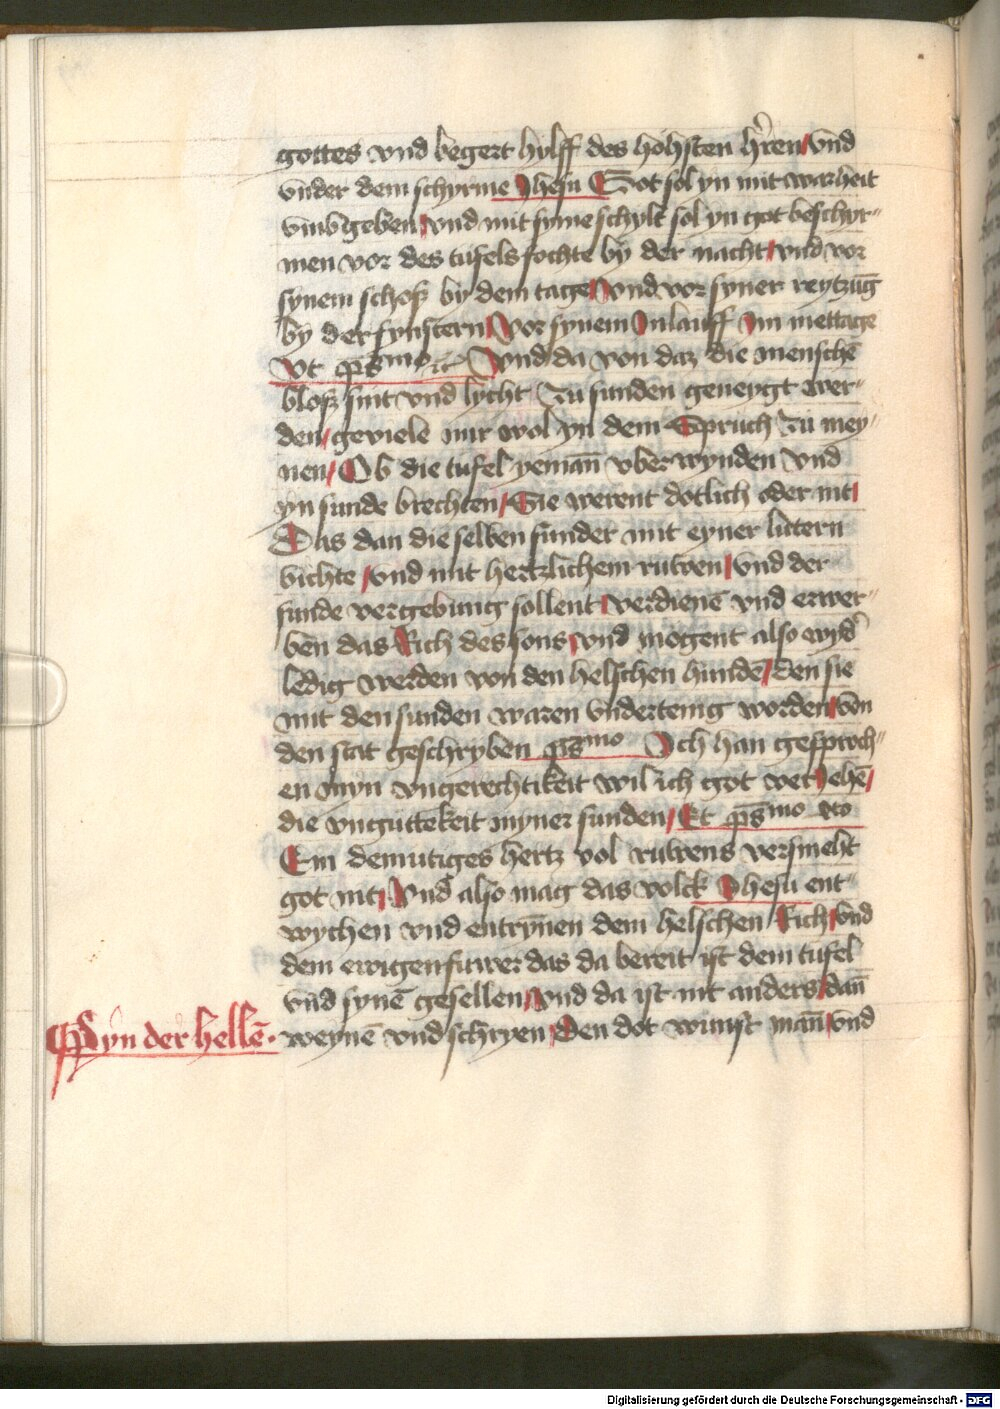 gottes vnd begert hylff des hohsten hrͤen / vnd
vnder dem schyrme Jhesu Got sol yn mit warheit
vmbgeben / vnd mit syme schylt sol yn got beschyr-
men vor des tufels fochte by der nacht / vnd vor
synem schoß by dem tage / vnd vor syner reytzūg
by der fynstern / Vor synem Inlauff Im mettage
Vt psmo
Vnd da von daz die menschē
bloß sint vnd lycht Zu sunden geneygt wer-
den / geviele mir wol yn dem Spruch Zu mey-
nen / Ob die tufel yemān vberwynden vnd
yn sunde brechten / Sie werent dotlich oder nit /
Das dan die selben sunder mit eyner luttern
bichte / vnd mit hertzlichem ruwen / vnd der
sunde vergebung sollent / verdienē vnd erwer-
ben das Rich des sons / vnd mogent also wydˀ
ledig werden von den helschen hundē / den sie
mit den sunden waren vndertenig worden / von
den stat geschryben psmo Ich han gesproch-
en myn vngerechtikeit wil ich got verJehē /
die vnguttekeit myner sunden / Et psmo
Ein demutiges hertz vol ruwens versmeht
got nit / Vnd also mag das volck Jhesu ent-
wychen vnd entrynen dem helschen Rich / vnd
dem ewigen fuwer das da bereit ist dem tufel
vnd synē gesellen / vnd da ist nit anders / dan
weynē vnd schryen / Den dot wunst mān / vnd
Pyn der hellē.
Digitalisierung gefördert durch die Deutsche Forschungsgemeinschaft - DFG